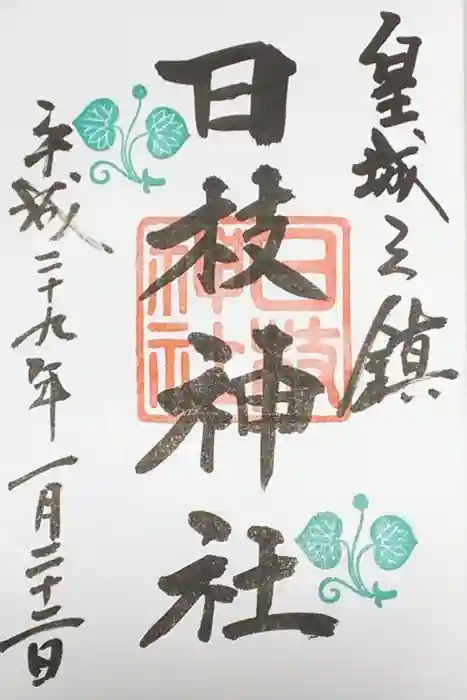 皇城之鎮
日枝神社
日枝神社
平成二十九年一月二十二日